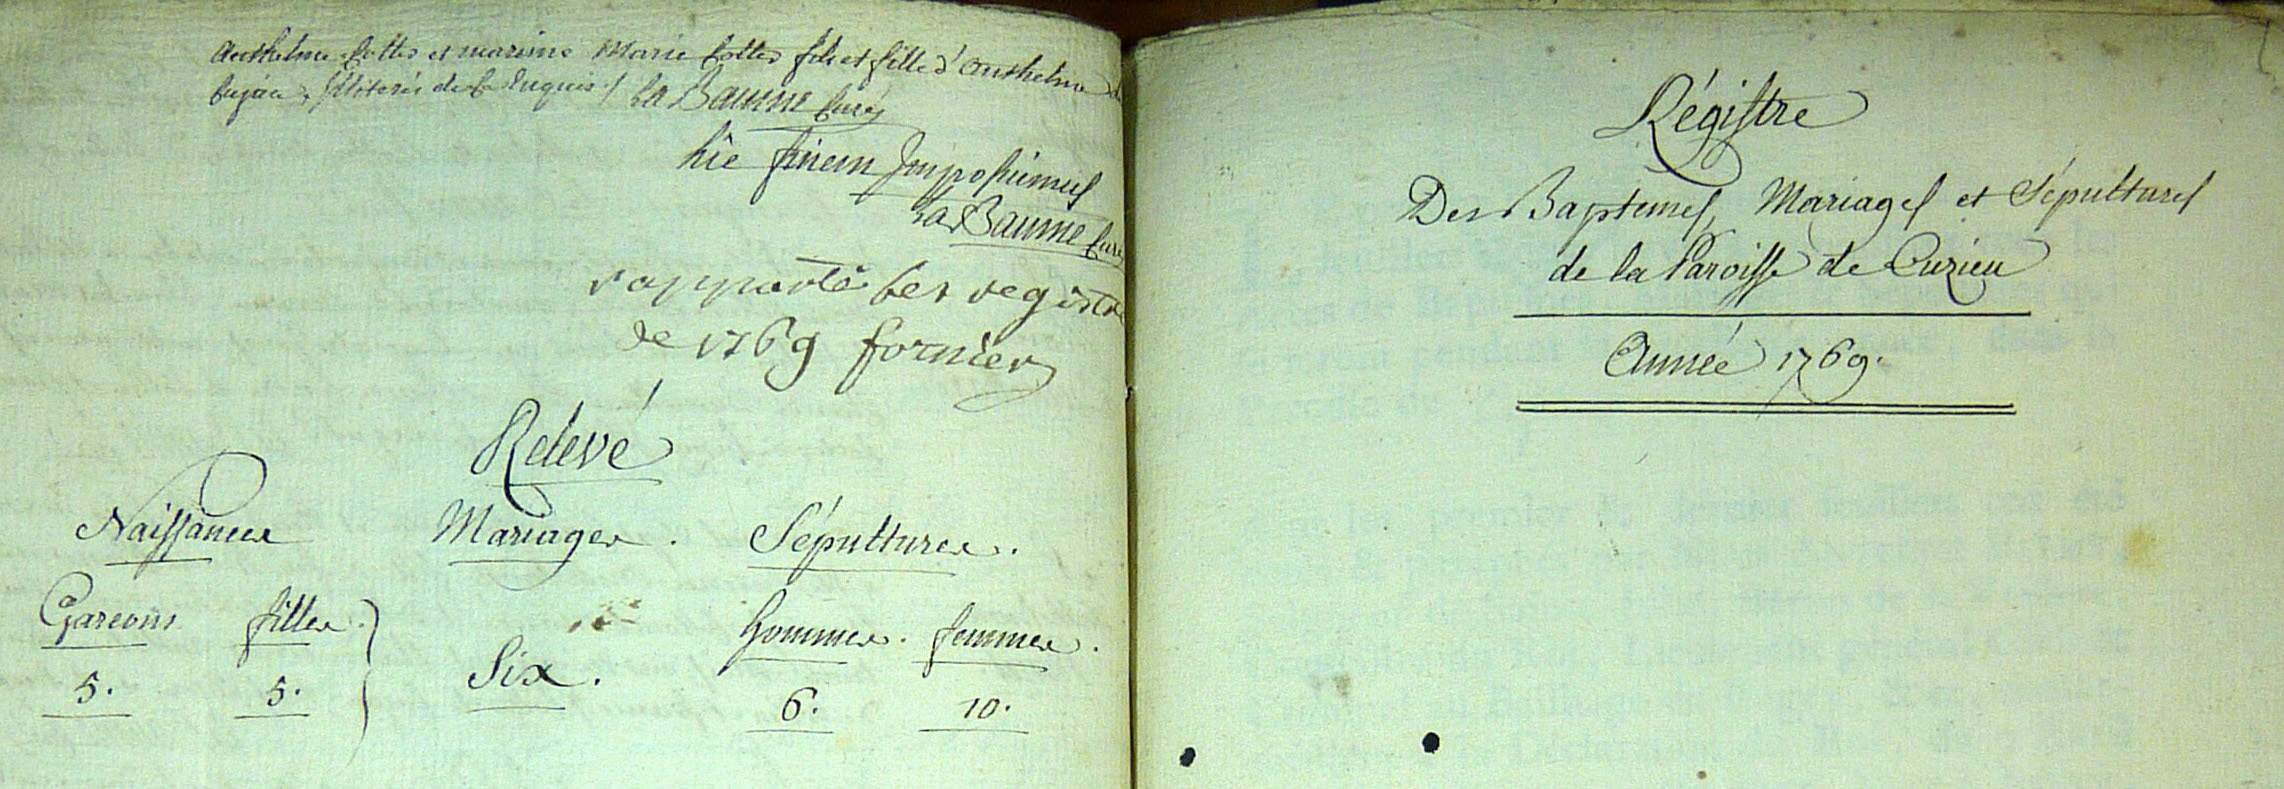 Anthelme Cottes et maraine Marie Cottes fils et fille d'Anthelme de
Cuzieu, illiterés de ce Enquis ./. La Baume Curé
hîc finem Imposuimus
La Baume Curé
rapporté ses registre
de 1769 fornier
Relevé
Naissances Mariages . Sépultures .
Garcons filles . hommes . femmes .
5. 5. Six . 6. 10.
Régistre
Des Baptemes, Mariages et Sépultures
de la Paroisse de Curieu
Année 1769.